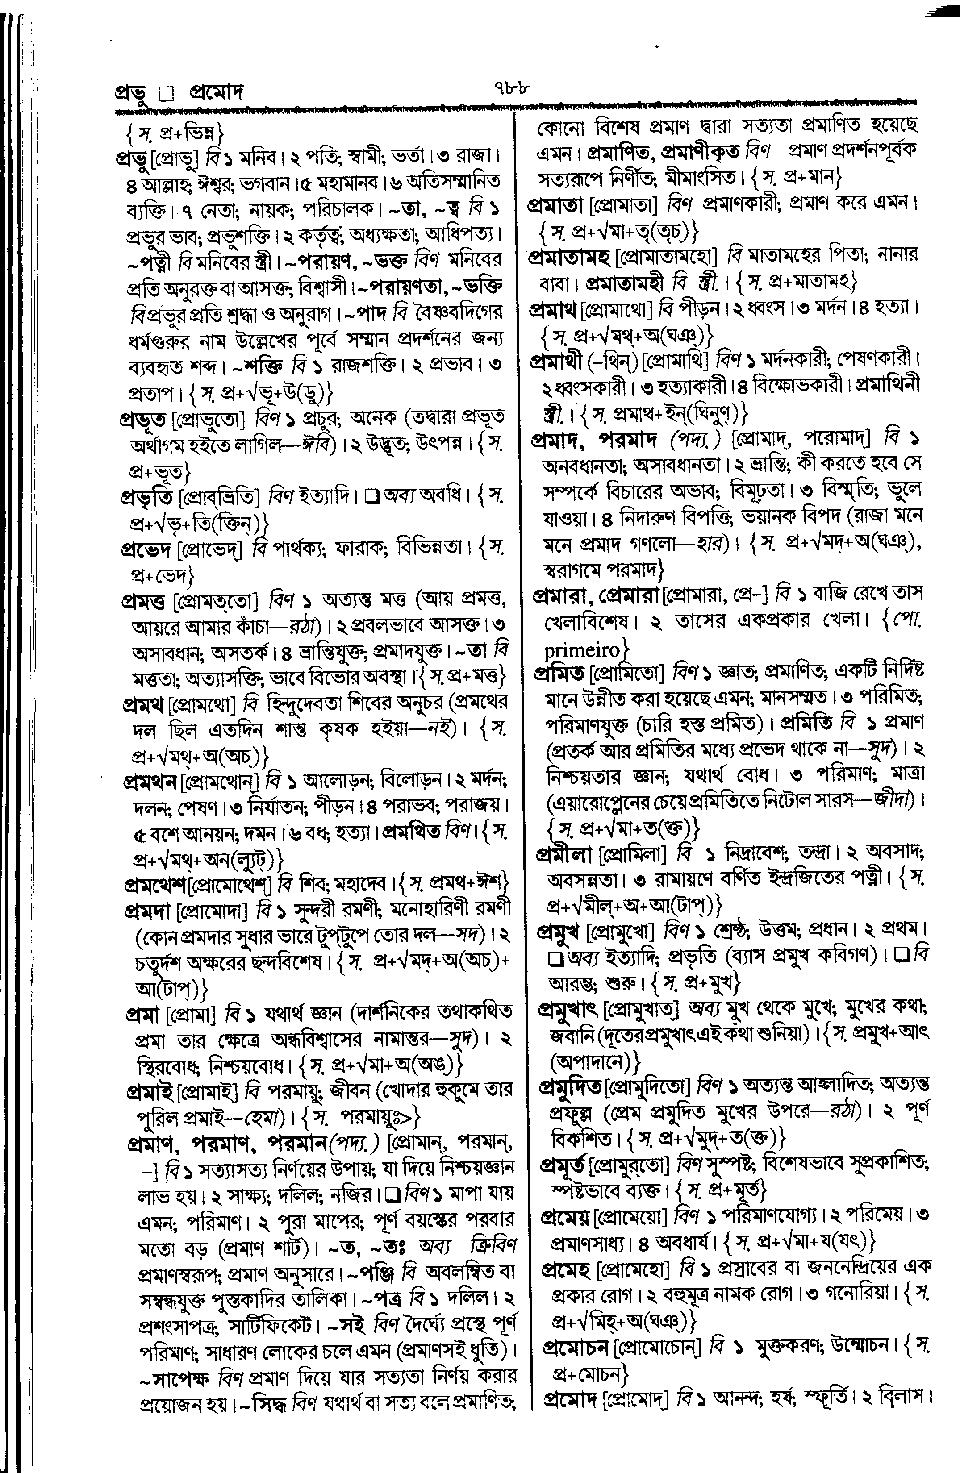 প্রভু □ প্রমোদ
৭৮৮
{স. প্র+ভিন্ন}
প্রভু [প্রোভু] বি ১ মনিব। ২ পতি; স্বামী; ভর্তা। ৩ রাজা।
৪ আল্লাহ; ঈশ্বর; ভগবান। ৫ মহামানব। ৬ অতিসম্মানিত
ব্যক্তি। ৭ নেতা; নায়ক; পরিচালক। ~তা, ~ত্ব বি ১
প্রভুর ভাব; প্রভুশক্তি। ২ কর্তৃত্ব; অধ্যক্ষতা; আধিপত্য।
~পত্নী বি মনিবের স্ত্রী। ~পরায়ণ, ~ভক্ত বিণ মনিবের
প্রতি অনুরক্ত বা আসক্ত; বিশ্বাসী। ~পরায়ণতা, ~ভক্তি
বি প্রভুর প্রতি শ্রদ্ধা ও অনুরাগ। ~পাদ বি বৈষ্ণবদিগের
ধর্মগুরুর নাম উল্লেখের পূর্বে সম্মান প্রদর্শনের জন্য
ব্যবহৃত শব্দ। ~শক্তি বি ১ রাজশক্তি। ২ প্রভাব। ৩
প্রতাপ। {স. প্র+√ভূ+উ(ডু)}
প্রভূত [প্রোভুতো] বিণ ১ প্রচুর; অনেক (তদ্বারা প্রভূত
অর্থাগম হইতে লাগিল—ঈবি)। ২ উদ্ভূত; উৎপন্ন। {স.
প্র+ভূত}
প্রভৃতি [প্রোব্ভ্রিতি] বিণ ইত্যাদি। □ অব্য অবধি। {স.
প্র+√ভৃ+তি(ক্তিন্)}
প্রভেদ [প্রোভেদ্] বি পার্থক্য; ফারাক; বিভিন্নতা। {স.
প্র+ভেদ}
প্রমত্ত [প্রোমত্‌তো] বিণ ১ অত্যন্ত মত্ত (আয় প্রমত্ত,
আয়রে আমার কাঁচা—রঠা)। ২ প্রবলভাবে আসক্ত। ৩
অসাবধান; অসতর্ক। ৪ ভ্রান্তিযুক্ত; প্রমাদযুক্ত। ~তা বি
মত্ততা; অত্যাসক্তি; ভাবে বিভোর অবস্থা। {স. প্র+মত্ত}
প্রমথ [প্রোমথো] বি হিন্দুদেবতা শিবের অনুচর (প্রমথের
দল ছিল এতদিন শান্ত কৃষক হইয়া—নই)। {স.
প্র+√মথ্+অ(অচ্)}
প্রমথন [প্রোমথোন্] বি ১ আলোড়ন; বিলোড়ন। ২ মর্দন;
দলন; পেষণ। ৩ নির্যাতন; পীড়ন। ৪ পরাভব; পরাজয়।
৫ বশে আনয়ন; দমন। ৬ বধ; হত্যা। প্রমথিত বিণ। {স.
প্র+√মথ্+অন(ল্যুট্)}
প্রমথেশ [প্রোমোথেশ্] বি শিব; মহাদেব। {স. প্রমথ+ঈশ}
প্রমদা [প্রোমোদা] বি ১ সুন্দরী রমণী; মনোহারিণী রমণী
(কোন প্রমদার সুধার ভারে টুপ্‌টুপে তোর দল—সদ)। ২
চতুর্দশ অক্ষরের ছন্দবিশেষ। {স. প্র+√মদ্+অ(অচ্)+
আ(টাপ্)}
প্রমা [প্রোমা] বি ১ যথার্থ জ্ঞান (দার্শনিকের তথাকথিত
প্রমা তার ক্ষেত্রে অন্ধবিশ্বাসের নামান্তর—সুদ)। ২
স্থিরবোধ; নিশ্চয়বোধ। {স. প্র+√মা+অ(অঙ)}
প্রমাই [প্রোমাই] বি পরমায়ু; জীবন (খোদার হুকুমে তার
পুরিল প্রমাই—হেমা)। {স. পরমায়ুঃ>}
প্রমাণ, পরমাণ, পরমান (পদ্য.) [প্রোমান্, পরমান্,
–] বি ১ সত্যাসত্য নির্ণয়ের উপায়; যা দিয়ে নিশ্চয়জ্ঞান
লাভ হয়। ২ সাক্ষ্য; দলিল; নজির। □ বিণ ১ মাপা যায়
এমন; পরিমাণ। ২ পুরা মাপের; পূর্ণ বয়স্কের পরবার
মতো বড় (প্রমাণ শার্ট)। ~ত, ~তঃ অব্য ক্রিবিণ
প্রমাণস্বরূপ; প্রমাণ অনুসারে। ~পঞ্জি বি অবলম্বিত বা
সম্বন্ধযুক্ত পুস্তকাদির তালিকা। ~পত্র বি ১ দলিল। ২
প্রশংসাপত্র; সার্টিফিকেট। ~সই বিণ দৈর্ঘ্যে প্রস্থে পূর্ণ
পরিমাণ; সাধারণ লোকের চলে এমন (প্রমাণসই ধুতি)।
~সাপেক্ষ বিণ প্রমাণ দিয়ে যার সত্যতা নির্ণয় করার
প্রয়োজন হয়। ~সিদ্ধ বিণ যথার্থ বা সত্য বলে প্রমাণিত;
কোনো বিশেষ প্রমাণ দ্বারা সত্যতা প্রমাণিত হয়েছে
এমন। প্রমাণিত, প্রমাণীকৃত বিণ প্রমাণ প্রদর্শনপূর্বক
সত্যরূপে নির্ণীত; মীমাংসিত। {স. প্র+মান}
প্রমাতা [প্রোমাতা] বিণ প্রমাণকারী; প্রমাণ করে এমন।
{স. প্র+√মা+তৃ(তৃচ্)}
প্রমাতামহ [প্রোমাতামহো] বি মাতামহের পিতা; নানার
বাবা। প্রমাতামহী বি স্ত্রী.। {স. প্র+মাতামহ}
প্রমাথ [প্রোমাথো] বি পীড়ন। ২ ধ্বংস। ৩ মর্দন। ৪ হত্যা।
{স. প্র+√মথ্+অ(ঘঞ্)}
প্রমাথী (–থিন্) [প্রোমাথি] বিণ ১ মর্দনকারী; পেষণকারী।
২ ধ্বংসকারী। ৩ হত্যাকারী। ৪ বিক্ষোভকারী। প্রমাথিনী
স্ত্রী.। {স. প্রমাথ+ইন্(ঘিনুণ্)}
প্রমাদ, পরমাদ (পদ্য.) [প্রোমাদ্, পরোমাদ্] বি ১
অনবধানতা; অসাবধানতা। ২ ভ্রান্তি; কী করতে হবে সে
সম্পর্কে বিচারের অভাব; বিমূঢ়তা। ৩ বিস্মৃতি; ভুলে
যাওয়া। ৪ নিদারুণ বিপত্তি; ভয়ানক বিপদ (রাজা মনে
মনে প্রমাদ গণলো—হার)। {স. প্র+√মদ্+অ(ঘঞ্),
স্বরাগমে পরমাদ}
প্রমারা, প্রেমারা [প্রোমারা, প্রে–] বি ১ বাজি রেখে তাস
খেলাবিশেষ। ২ তাসের একপ্রকার খেলা। {পো.
primeiro}
প্রমিত [প্রোমিতো] বিণ ১ জ্ঞাত; প্রমাণিত; একটি নির্দিষ্ট
মানে উন্নীত করা হয়েছে এমন; মানসম্মত। ৩ পরিমিত;
পরিমাণযুক্ত (চারি হস্ত প্রমিত)। প্রমিতি বি ১ প্রমাণ
(প্রতর্ক আর প্রমিতির মধ্যে প্রভেদ থাকে না—সুদ)। ২
নিশ্চয়তার জ্ঞান; যথার্থ বোধ। ৩ পরিমাণ; মাত্রা
(এয়ারোপ্লেনের চেয়ে প্রমিতিতে নিটোল সারস—জীদা)।
{স. প্র+√মা+ত(ক্ত)}
প্রমীলা [প্রোমিলা] বি ১ নিদ্রাবেশ; তন্দ্রা। ২ অবসাদ;
অবসন্নতা। ৩ রামায়ণে বর্ণিত ইন্দ্রজিতের পত্নী। {স.
প্র+√মীল্+অ+আ(টাপ্)}
প্রমুখ [প্রোমুখো] বিণ ১ শ্রেষ্ঠ; উত্তম; প্রধান। ২ প্রথম।
□ অব্য ইত্যাদি; প্রভৃতি (ব্যাস প্রমুখ কবিগণ)। □ বি
আরম্ভ; শুরু। {স. প্র+মুখ}
প্রমুখাৎ [প্রোমুখাত্] অব্য মুখ থেকে মুখে; মুখের কথা;
জবানি (দূতের প্রমুখাৎ এই কথা শুনিয়া)। {স. প্রমুখ+আৎ
(অপাদানে)}
প্রমুদিত [প্রোমুদিতো] বিণ ১ অত্যন্ত আহ্লাদিত; অত্যন্ত
প্রফুল্ল (প্রেম প্রমুদিত মুখের উপরে—রঠা)। ২ পূর্ণ
বিকশিত। {স. প্র+√মুদ্+ত(ক্ত)}
প্রমূর্ত [প্রোমুর্‌তো] বিণ সুস্পষ্ট; বিশেষভাবে সুপ্রকাশিত;
স্পষ্টভাবে ব্যক্ত। {স. প্র+মূর্ত}
প্রমেয় [প্রোমেয়ো] বিণ ১ পরিমাণযোগ্য। ২ পরিমেয়। ৩
প্রমাণসাধ্য। ৪ অবধার্য। {স. প্র+√মা+য(যৎ)}
প্রমেহ [প্রোমেহো] বি ১ প্রস্রাবের বা জননেন্দ্রিয়ের এক
প্রকার রোগ। ২ বহুমূত্র নামক রোগ। ৩ গনোরিয়া। {স.
প্র+√মিহ্+অ(ঘঞ্)}
প্রমোচন [প্রোমোচোন্] বি ১ মুক্তকরণ; উন্মোচন। {স.
প্র+মোচন}
প্রমোদ [প্রোমোদ্] বি ১ আনন্দ; হর্ষ; স্ফূর্তি। ২ বিলাস।